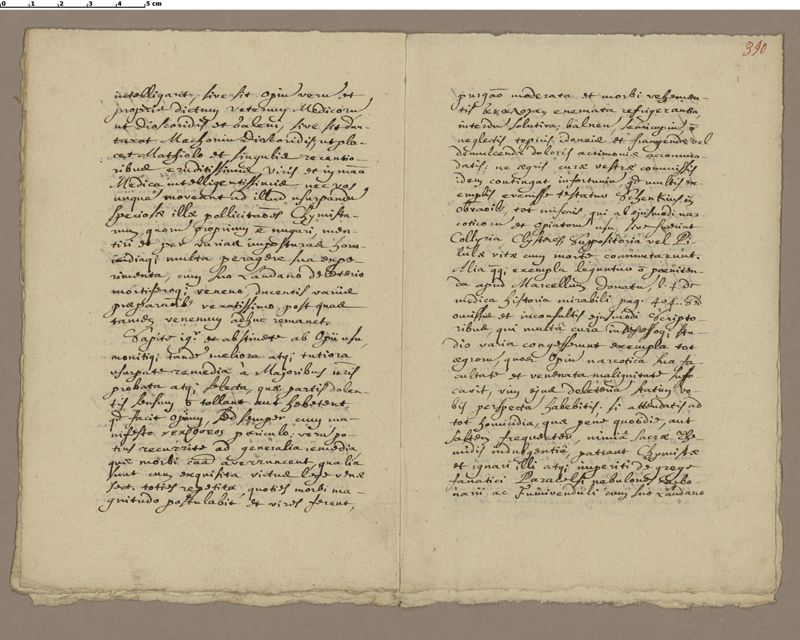 0 1 2 3 4 5 cm
390
intelligant, sive sit opiu veru et
proprie dictum veterum Medicoru
ut Dioscoridis et Galeni, sive sit dun-
taxat Meconiu Dioscoridis, ut pla-
cet Mathiolo et singulis recentio-
ribus eruditissimis viris et in
Medica intelligentissimis, nec vos
unqua moveant ad illud usurpandu
speciosae illae pollicitaões Chymista-
rum, quoru proprium e nugari, men-
tiri et per varias imposturas hom-
icidiaq; multa peragere sua expe-
rimenta, cum suo Landano deleterio
mortiferoq; veneno ducentis variis
praeparaõibus vexatissimo, post quae
tamen venenum adhuc remanet.
Sapite igr et abstinete ab Opii usu,
monitiq; tande meliora atq; tutiora
usurpate remedia a Majoribus nris
probata atq; selecta, quae partis dolen-
tis sensum tollant aut hebetent,
facit opium, sed semper cum ma-
nifesto periculo: veru po-
tius recurrite ad generalia remedia
quae morbi cãm averruncent, qualia
sunt cum exquisita victus lege venae
sect. toties repetita, quoties morbi ma-
gnitudo postulabit et vires ferent,
purgaõ moderata et morbi vehemen-
tis enemata refrigerantia
interdu solutiva, balneu
neglectis topicis idoneis et frangendae vel
demulcendae doloris acrimoniae accomoda-
datis: ne aegris curae vestrae commissis
idem contingat infortuniu qd multis ex-
emplis evenisse testatur Schenkius in
obvaõib, tot miseris, qui ab ejusmodi nar-
coticoru et opiatoru usu, sive fuerint
Collyria Clysteres Suppositoria vel Pi-
lulae vitae cum morte commutarunt.
Alia qq; exempla leguntur
da apud Marcellum Donatu, l. 4 de
medica historia mirabili pag. 404. Sed
omissis et inconsultis ejusmodi Scripto-
ribus, qui multa cura stu-
dio varia congesserunt exempla tot
aegroru, quos Opiu narcotica sua fa-
cultate et venenata malignitate suffo-
cavit, vim ejus deleteria statim vo-
bis perspecta habebitis: si attendatis ad
tot homicidia, quae pene quotidie, aut
saltem frequenter, nimia sacrae The-
midis indulgentia, patrant Chymistae
et ignari illi atq; imperiti de grege
fanatici Paracelsi nebulones carbo-
narii ac Fumivenduli cum suo Laudano